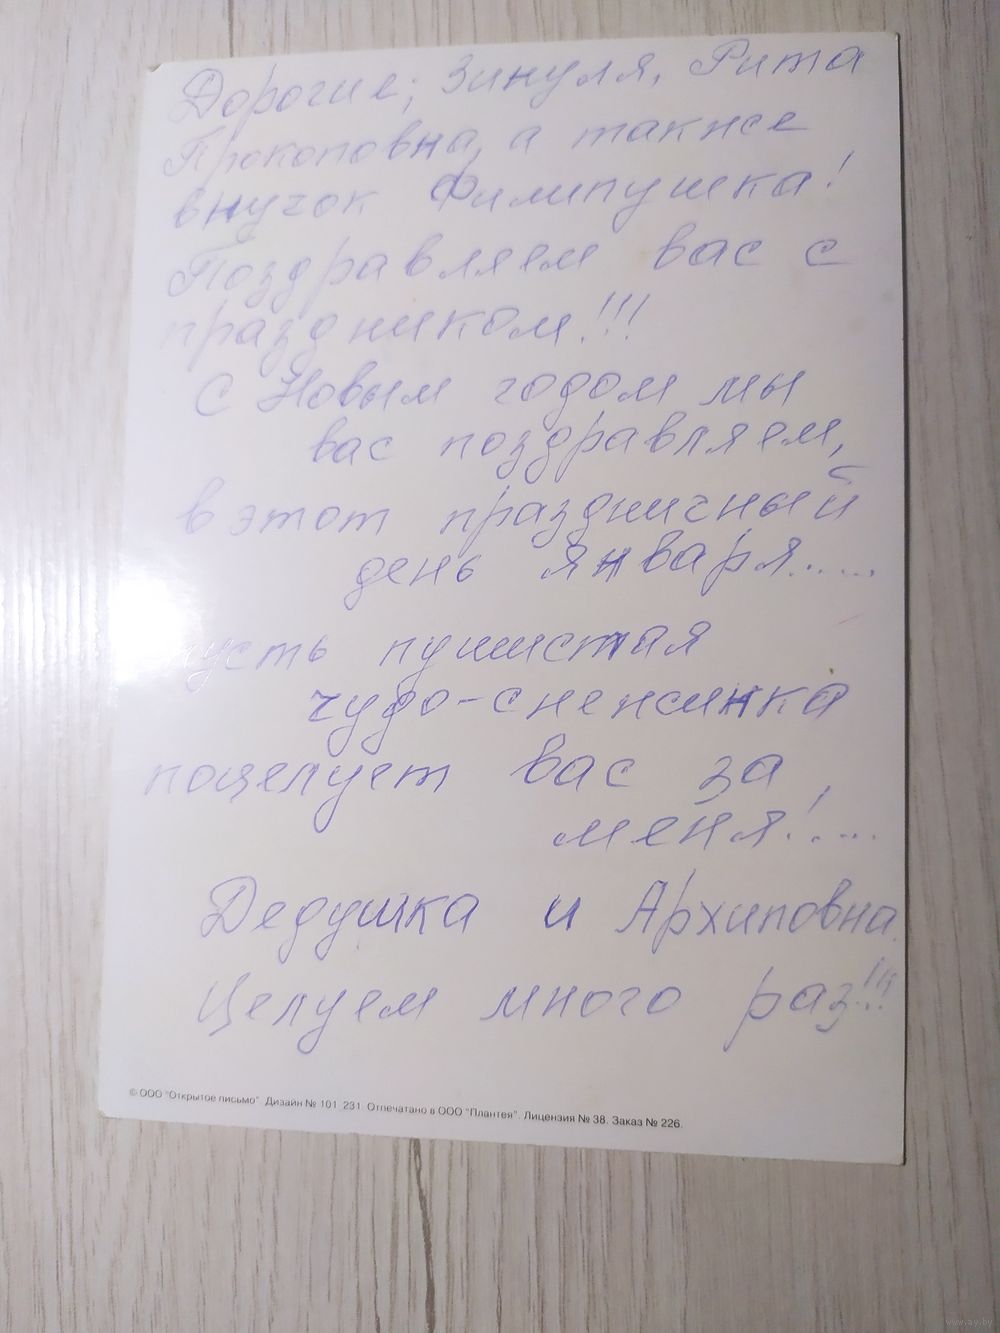 Дорогие; Зинуля, Рита
Прокоповна, а также
внучок Филипушка!
Поздравляем вас с
праздником!!!
С Новым годом мы
вас поздравляем,
в этот праздничный
день января.....
пусть пушистая
чудо-снежинка
поцелует вас за
меня!....
Дедушка и Архиповна.
Целуем много раз!!!
© ООО "Открытое письмо". Дизайн № 101 231. Отпечатано в ООО "Плантея". Лицензия № 38. Заказ № 226.
www.ay.by